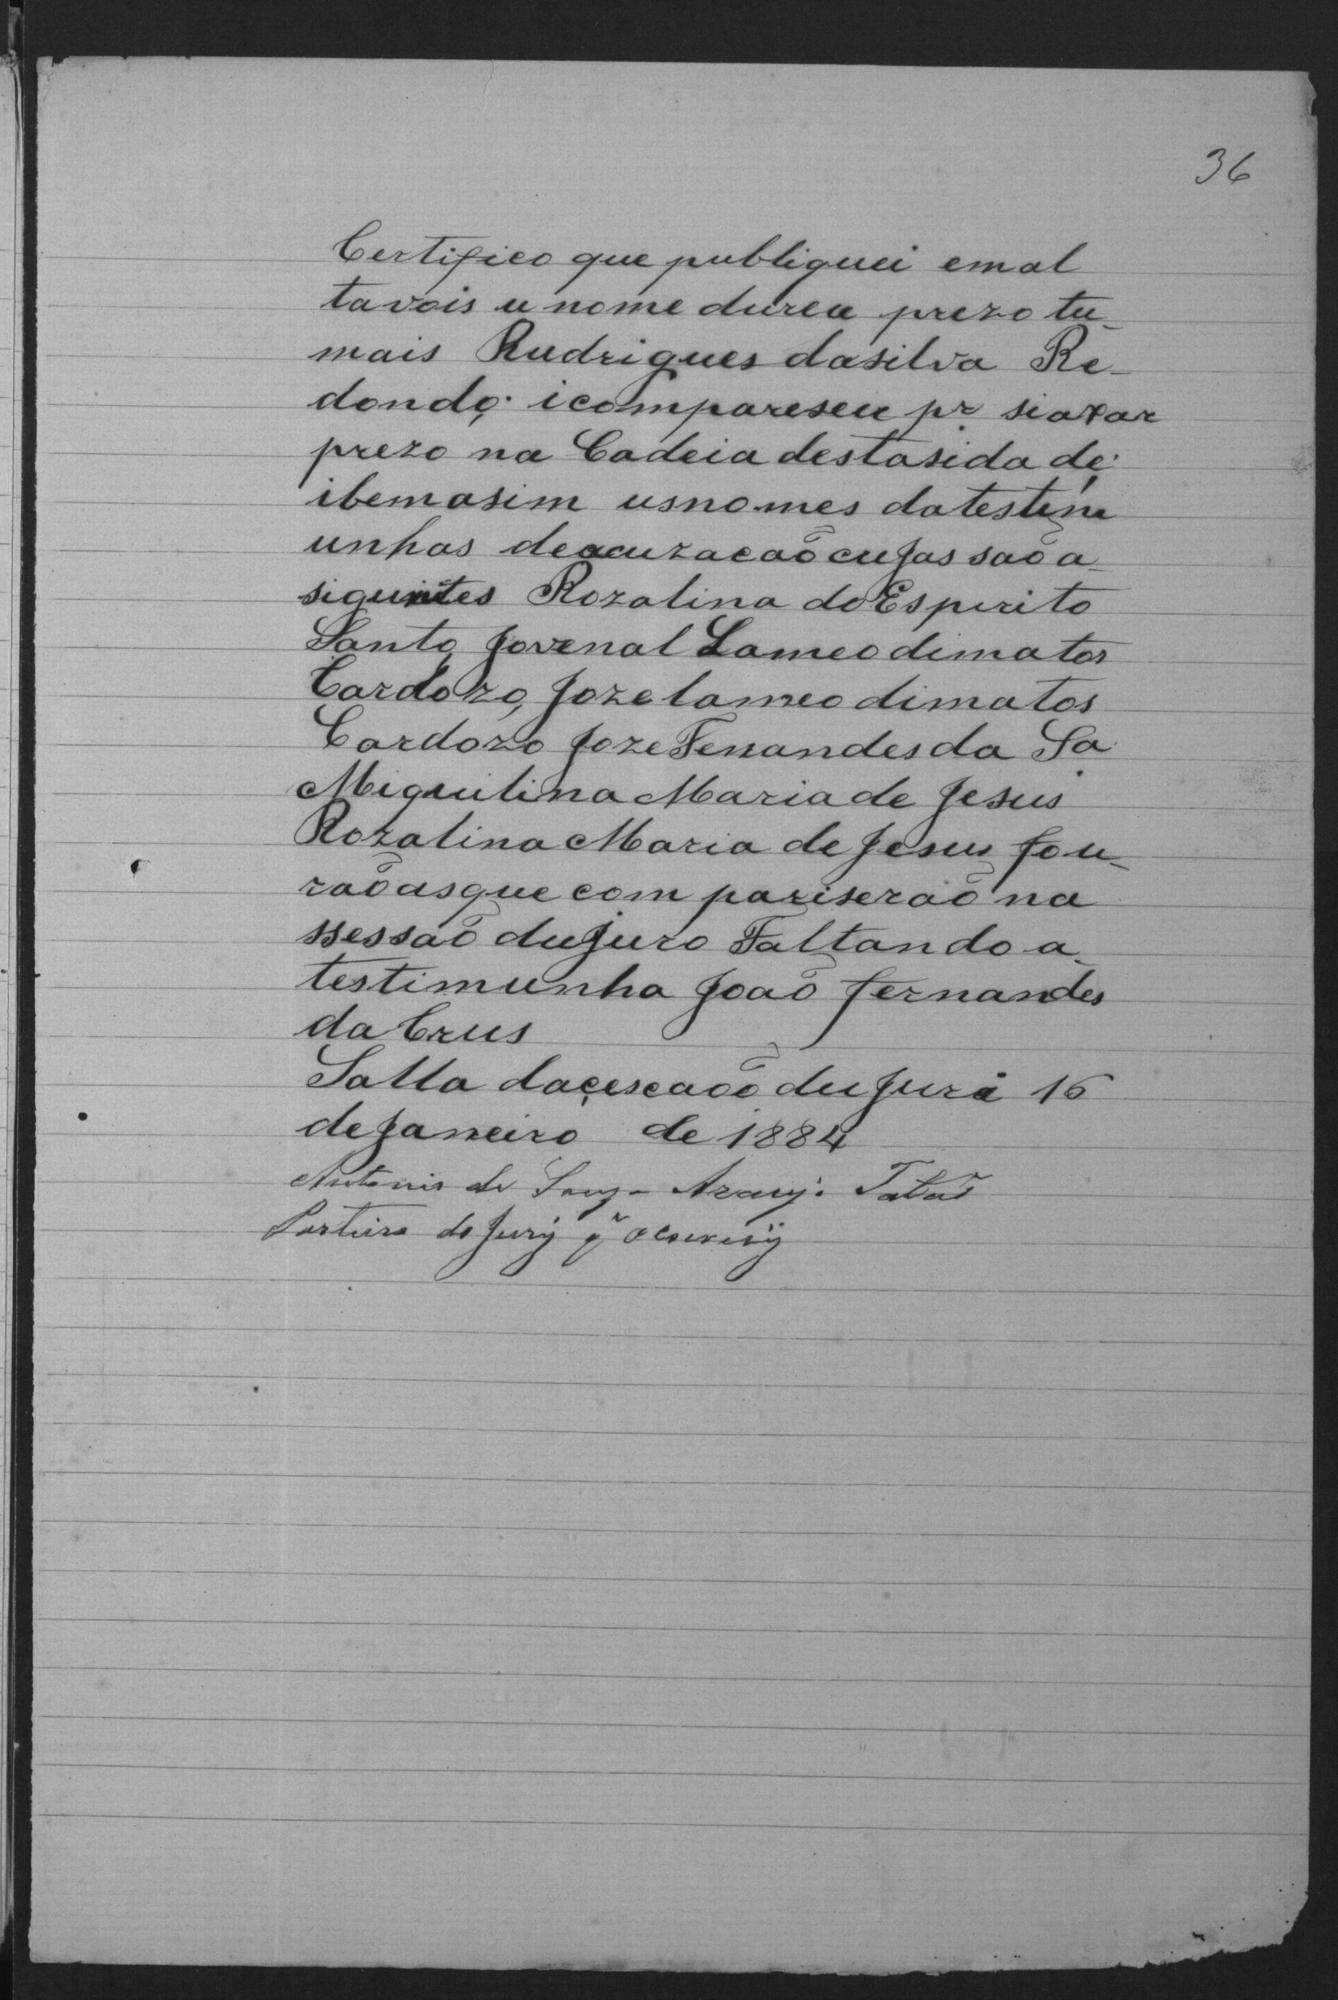 36
Certifico que publiquei em al
ta vois u nome du reu prezo tu-
mais Rudrigues da silva Re-
dondo; i compareseu pr. siaxar
prezo na Cadeia desta sida de;
i bem asim us nomes da testim
unhas de acuzacaõ cujas saõ a-
siguintes Rozalina do Espirito
Santo, Jovenal Lameo di matos
Cardozo, Joze lameo di matos
Cardozo Joze Fernandes da Sa
Miquilina Maria de Jesus
Rozalina Maria de Jesus fou-
raõ as que com pariseraõ na
ssessaõ du Juro Faltando a-
testimunha Joaõ fernandes
da Crus
Salla da çescaõ du Juri 16
de Janeiro de 1884
Antonio de Souza Araujo
Porteiro do Jury q̃ o escrevÿ